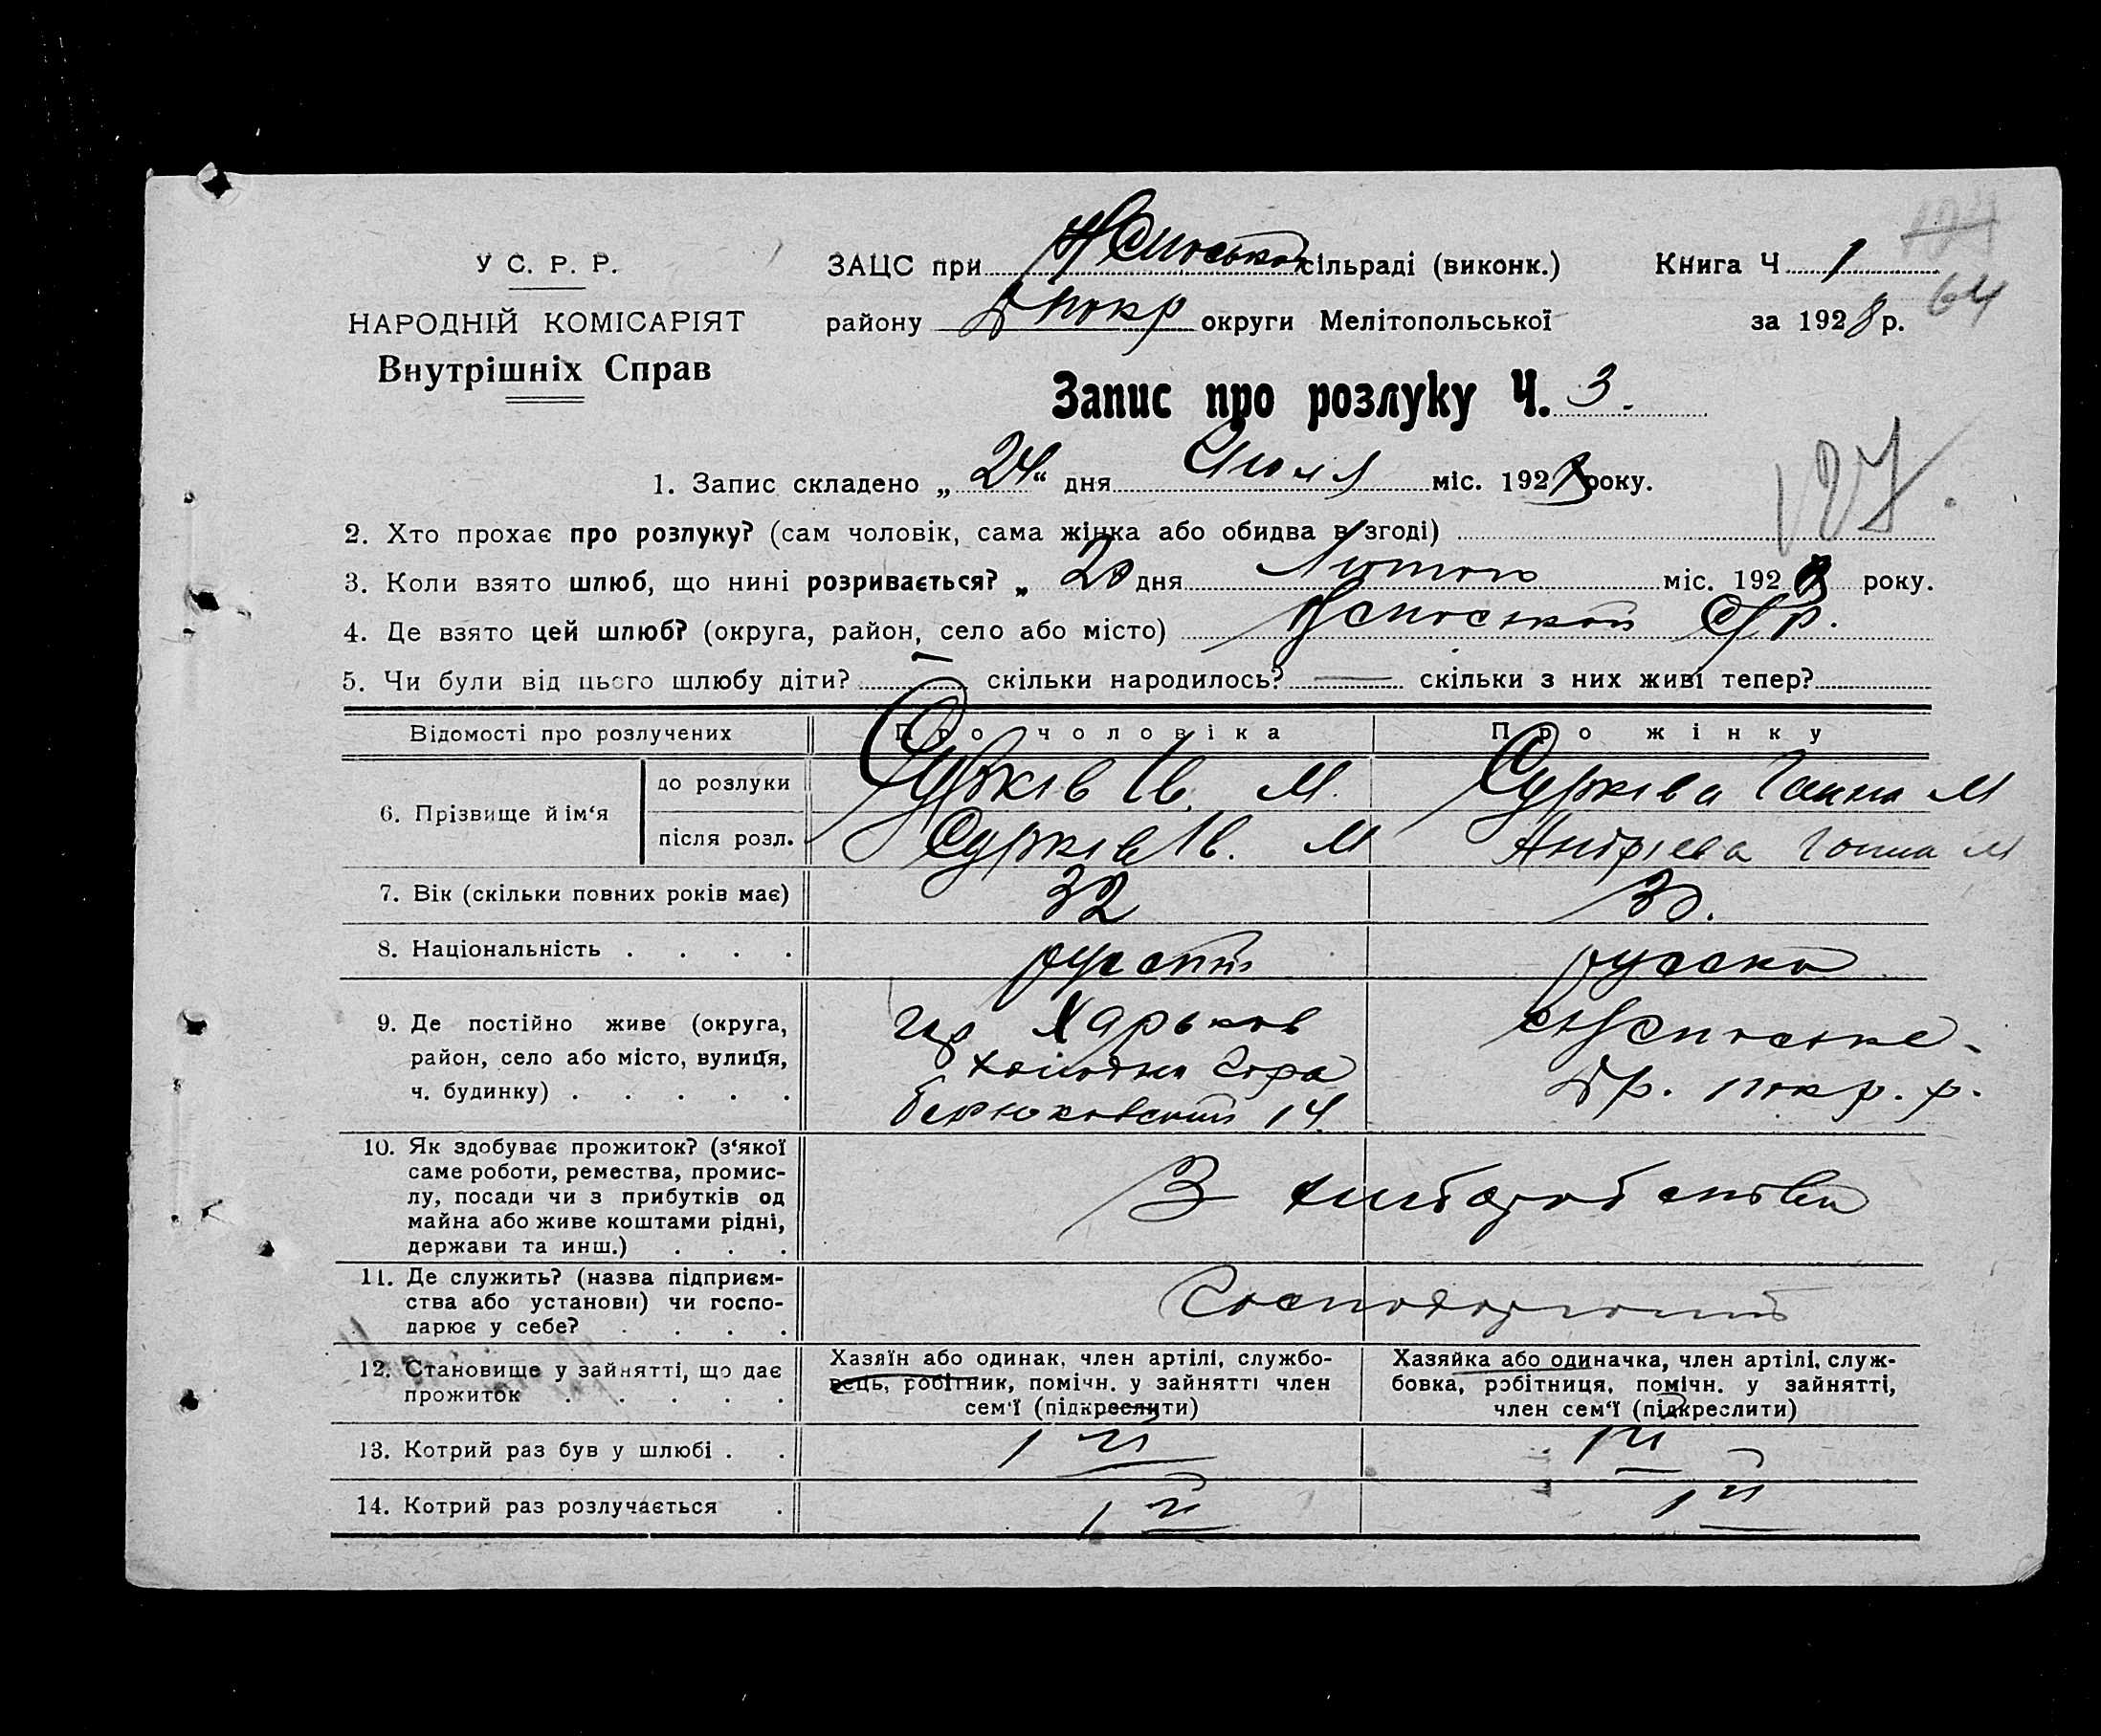 124
64
У С. Р. Р.
НАРОДНІЙ КОМІСАРІЯТ
Внутрішніх Справ
ЗАЦС при сільраді (виконк.) Книга Ч 1
району округи Мелітопольської за 1928 р.
Запис про розлуку Ч. 3.
127.
1. Запис складено „24“ дня Июля міс. 1928 року.
2. Хто прохає про розлуку? (сам чоловік, сама жінка або обидва в згоді)
3. Коли взято шлюб, що нині розривається? „ 20 дня Лютого міс. 1928 року.
4. Де взято цей шлюб? (округа, район, село або місто) С/р.
5. Чи були від цього шлюбу діти? — скільки народилось? — скільки з них живі тепер?
Відомості про розлучених Про чоловіка Про жінку
6. Прізвище й ім‘я
до розлуки Сурків Ів. М. Сурківа Ганна М
після розл. Сурків Ів. М Андріева Ганна М
7. Вік (скільки повних років має) 32 30.
8. Національність . . . . руский руська
9. Де постійно живе (округа, район, село або місто, вулиця, ч. будинку) . . . . .
Харьков
Холодна Гора
14
р.
10. Як здобуває прожиток? (з‘якої саме роботи, ремества, промислу, посади чи з прибутків од майна або живе коштами рідні, держави та инш.) . . .
З хліборобства
11. Де служить? (назва підприємства або установи) чи господарює у себе? . . . .
12. Становище у зайнятті, що дає прожиток . . . . .
Хазяїн або одинак, член артілі, службовець, робітник, помічн. у зайнятті член сем‘ї (підкреслити)
Хазяйка або одиначка, член артілі, службовка, робітниця, помічн. у зайнятті, член сем‘ї (підкреслити)
13. Котрий раз був у шлюбі . . 1й 1й
14. Котрий раз розлучається . 1й 1й